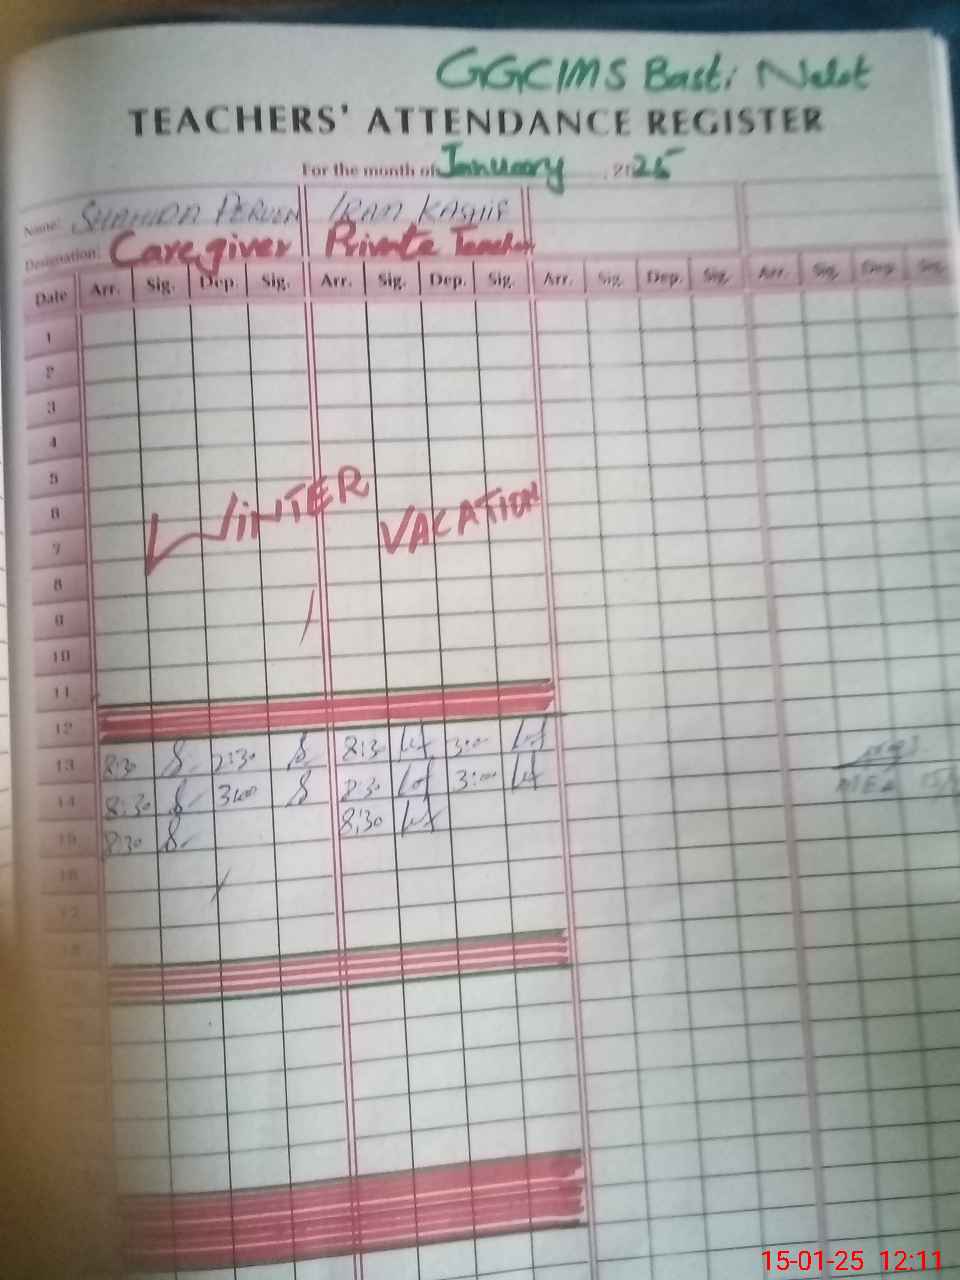 GGCIMS Basti Nalot
TEACHERS' ATTENDANCE REGISTER
For the month of January , 2025
Name: SHAHIDA PERVEN IRAM KASHIF
Designation: Caregiver Private Teacher
Date Arr. Sig. Dep. Sig. Arr. Sig. Dep. Sig. Arr. Sig. Dep. Sig. Arr. Sig. Dep. Sig.
1
2
3
4
5
6
7
WINTER VACATION
8
9
10
11
12
13 8:30 2:30 8:30 3:00
14 8:30 3:00 8:30 3:00
15 8:30 8:30
16
17
15-01-25 12:11